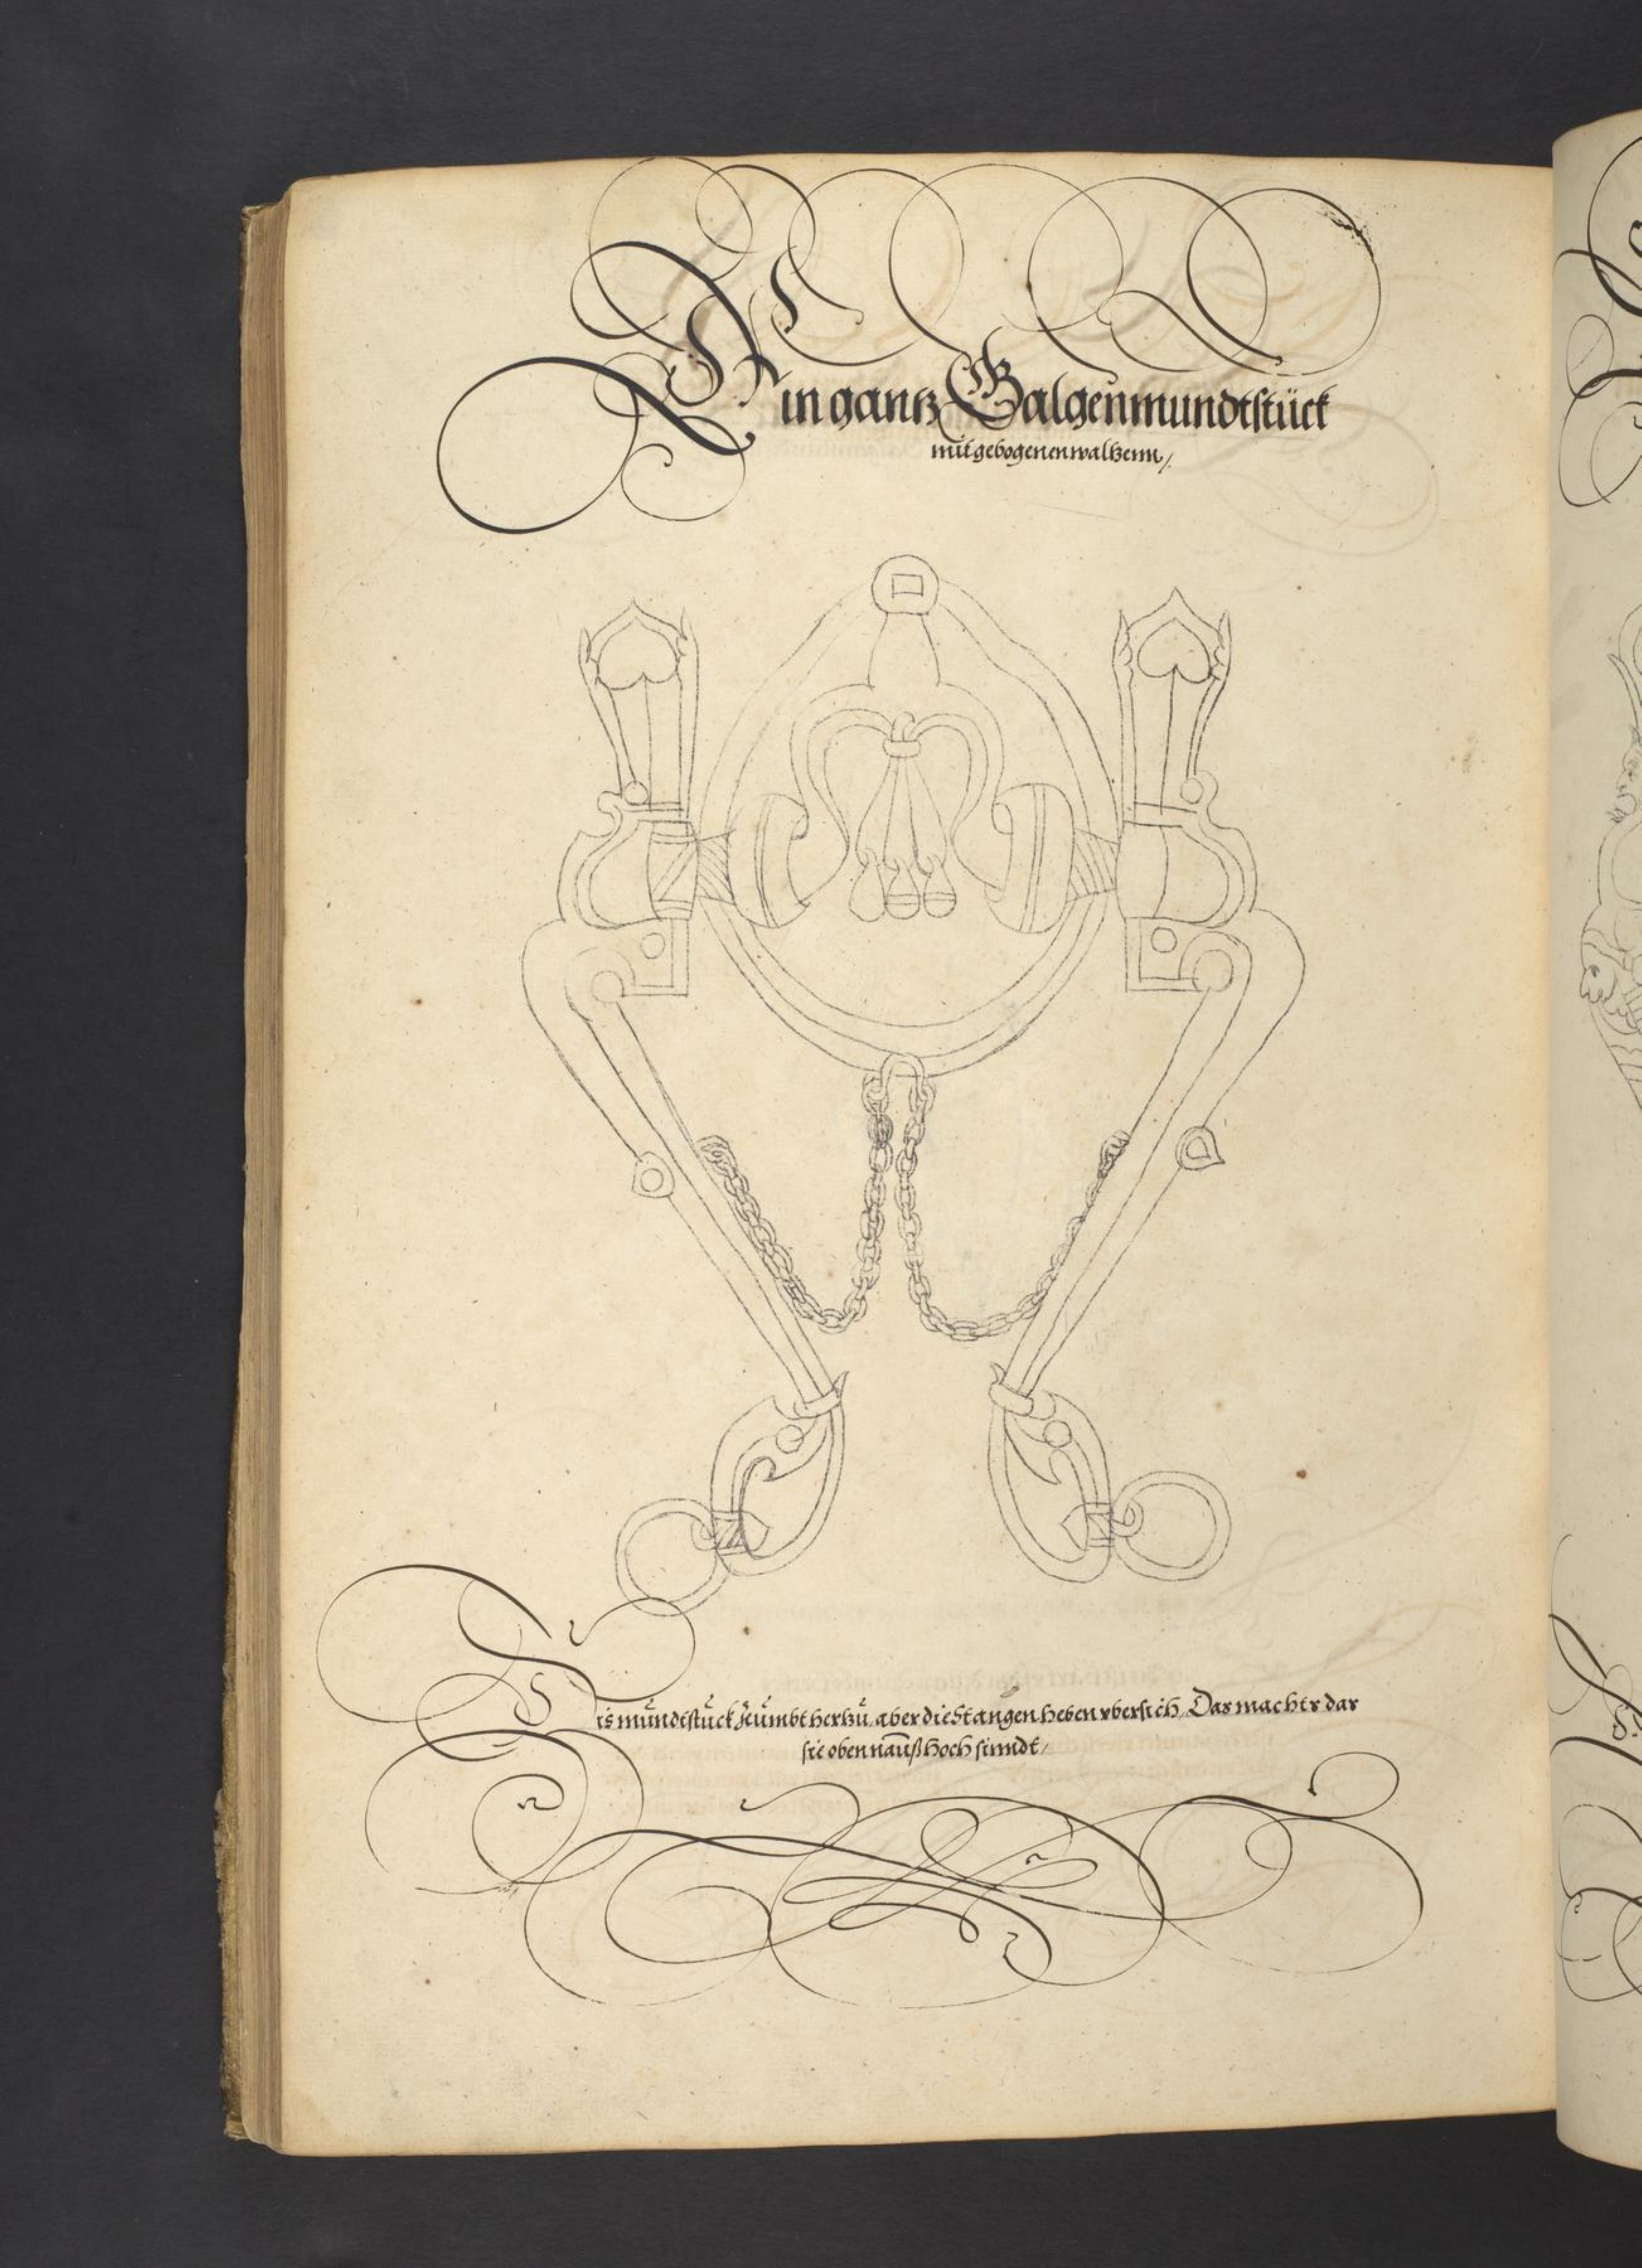 Ein gantz Galgenmundtstück
mit gebogenen waltzenn/
Dis mundtstuck zeumbt hertzu, aber die Stangen heben vbersich, Das machts das
sie oben nauß hoch sinndt/